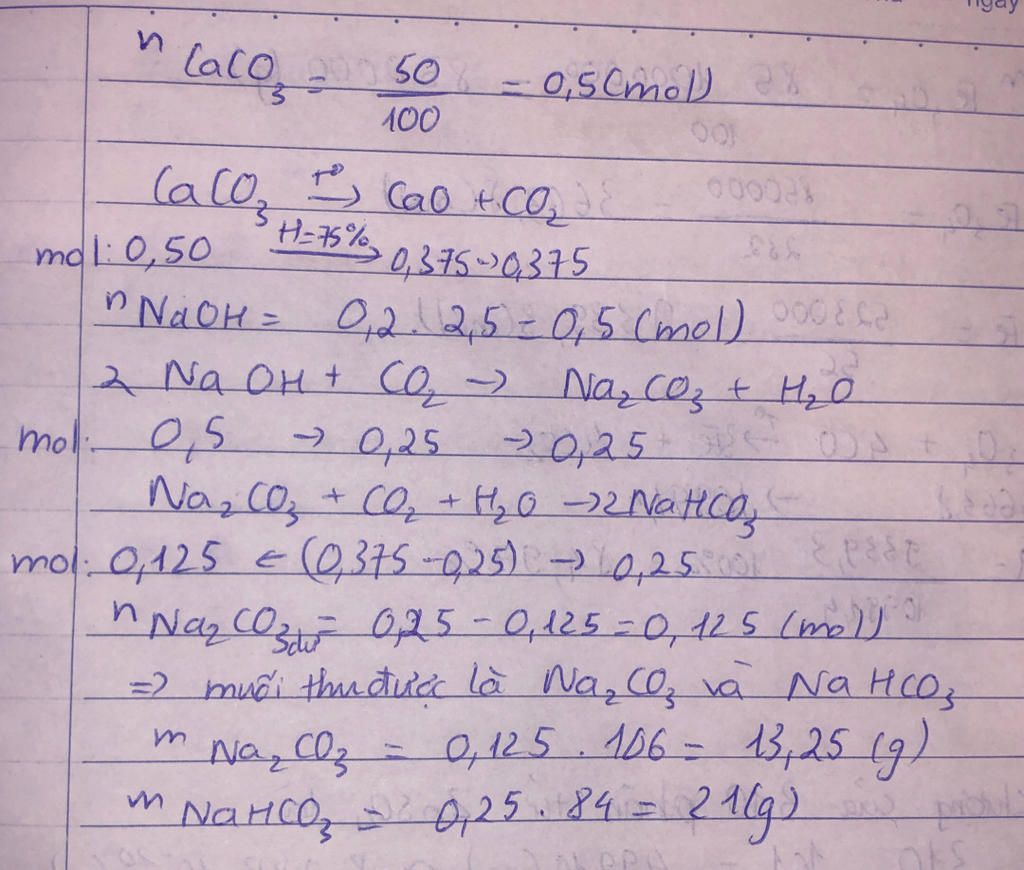 nCaCO₃ = 50/100 = 0,5(mol)
CaCO₃ —t°→ CaO + CO₂
mol: 0,50 —H=75%→ 0,375 → 0,375
nNaOH = 0,2 . 2,5 = 0,5 (mol)
2 NaOH + CO₂ → Na₂CO₃ + H₂O
mol: 0,5 → 0,25 → 0,25
Na₂CO₃ + CO₂ + H₂O → 2NaHCO₃
mol: 0,125 ← (0,375 - 0,25) → 0,25
nNa₂CO₃dư = 0,25 - 0,125 = 0,125 (mol)
=> muối thu được là Na₂CO₃ và NaHCO₃
mNa₂CO₃ = 0,125 . 106 = 13,25 (g)
mNaHCO₃ = 0,25 . 84 = 21(g)